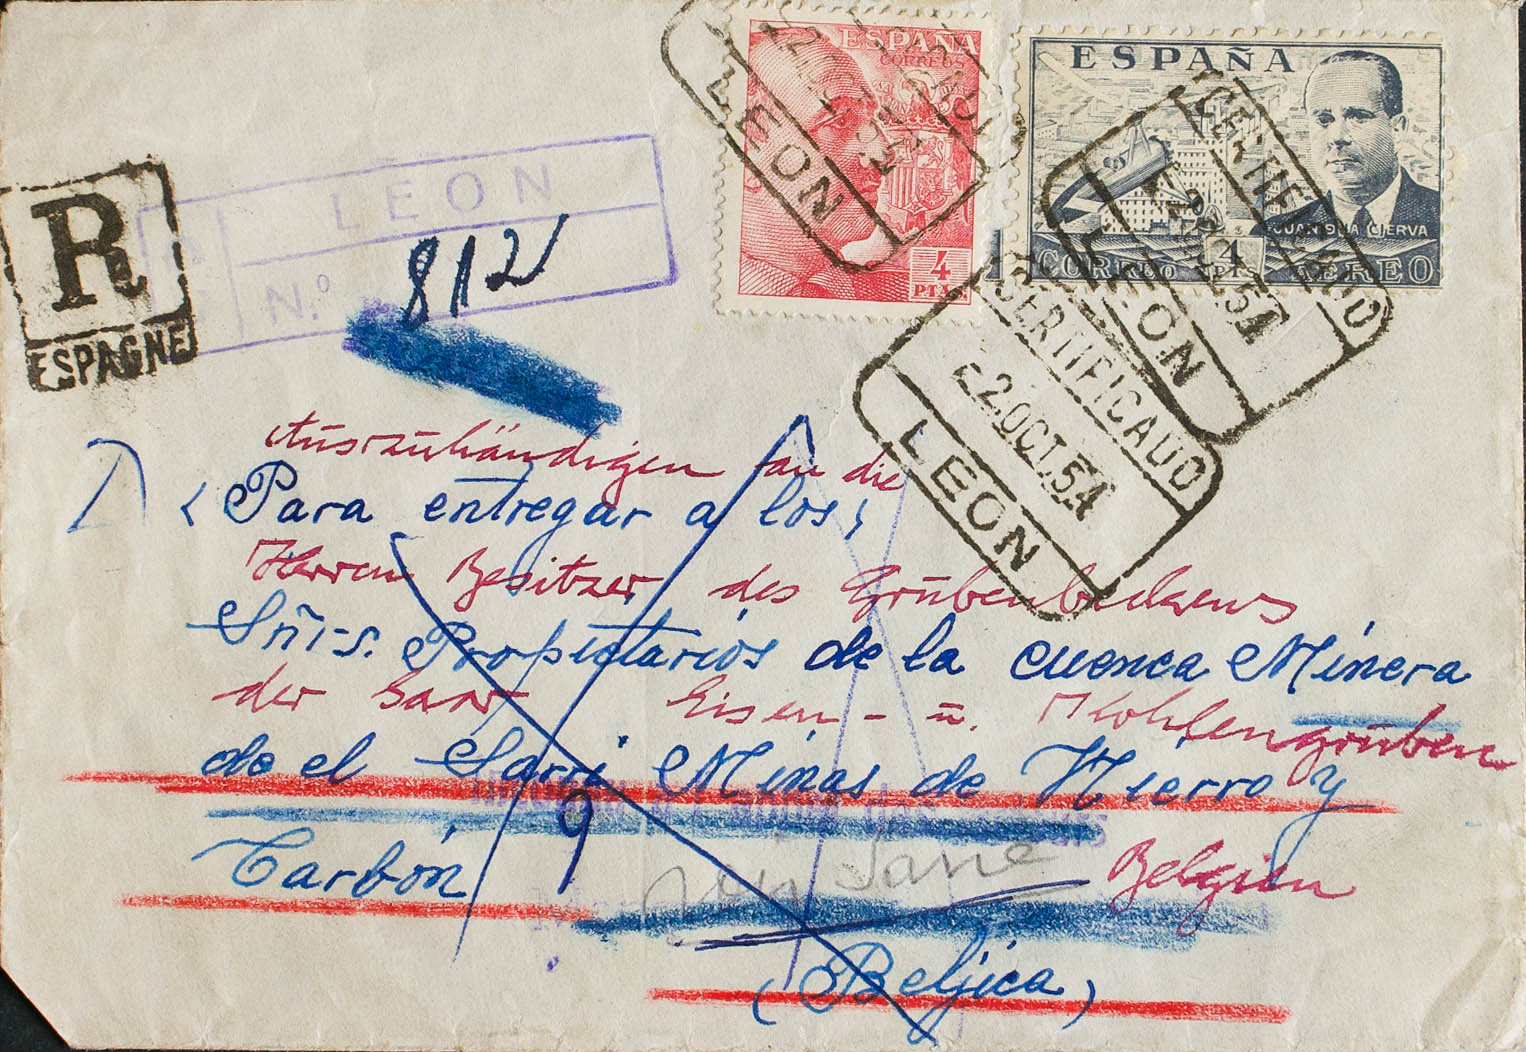 ESPAÑA
CORREOS
4
PTAS
ESPAÑA
JUAN DE LA CIERVA
CORREO 4 PTS AEREO
CERTIFICADO
LEON
CERTIFICADO
LEON
CERTIFICADO
-2.OCT.54
LEON
R
ESPAGNE
LEON
N.º 812
Auszuhändigen an die
(Para entregar a los)
Herren Besitzer des Grubenbeckens
Sñrs. Propietarios de la cuenca Minera
der Saar Eisen- u. Kohlengruben
de el Sarre Minas de Hierro y
9
Carbón
Sarre
Belgien
(Beljica)